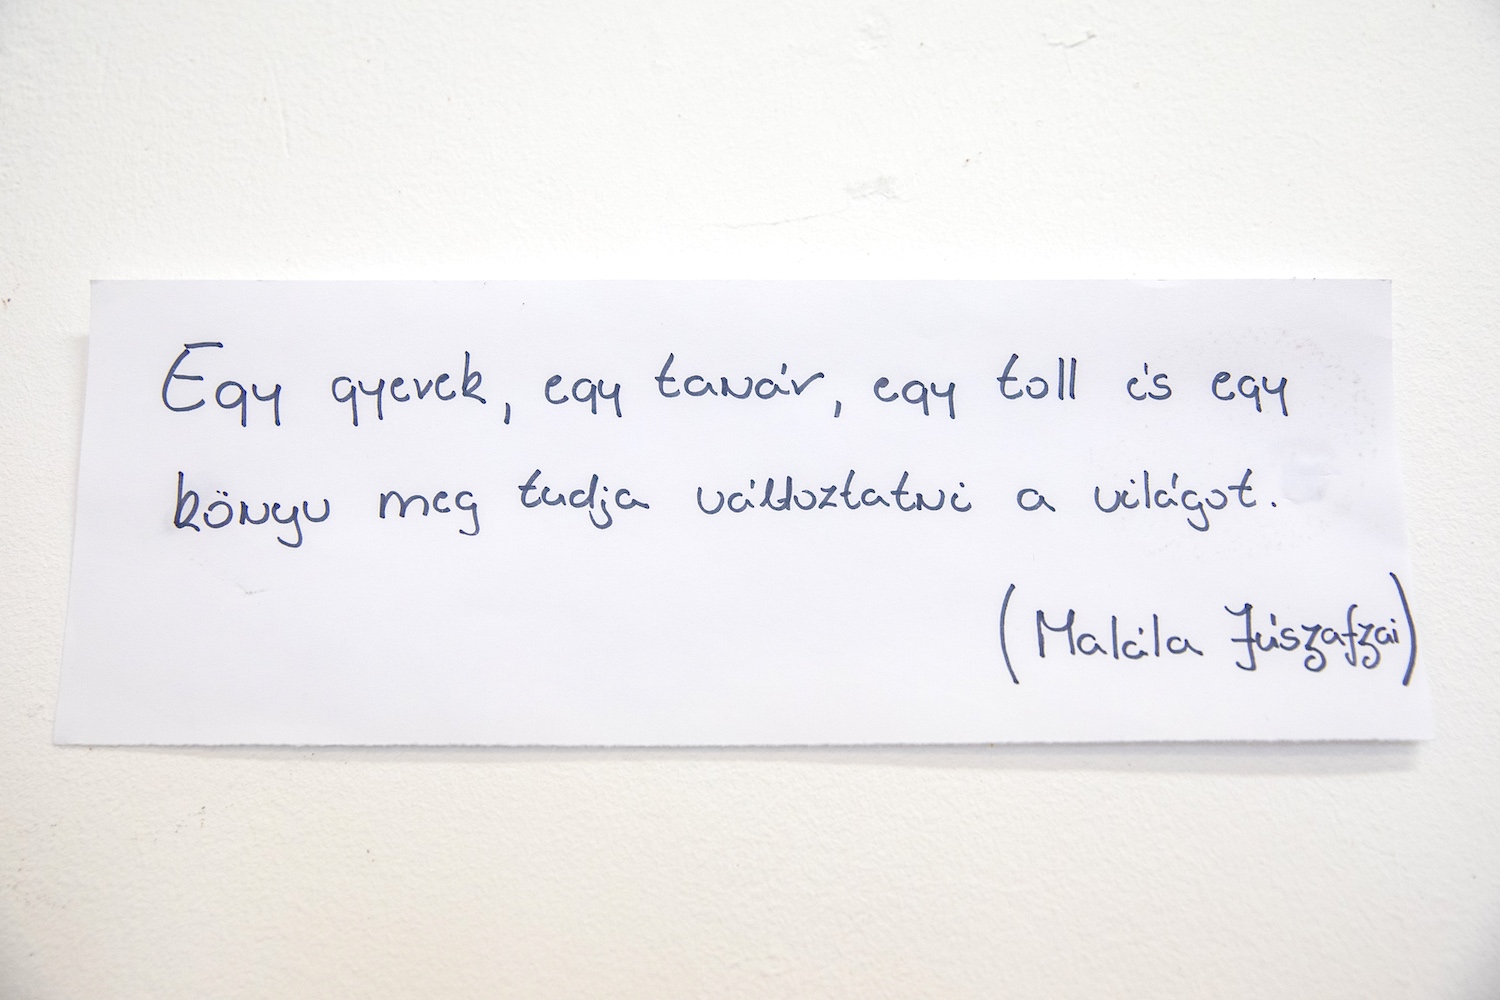 Egy gyerek, egy tanár, egy toll és egy
könyv meg tudja változtatni a világot.
(Malála Júszafzai)